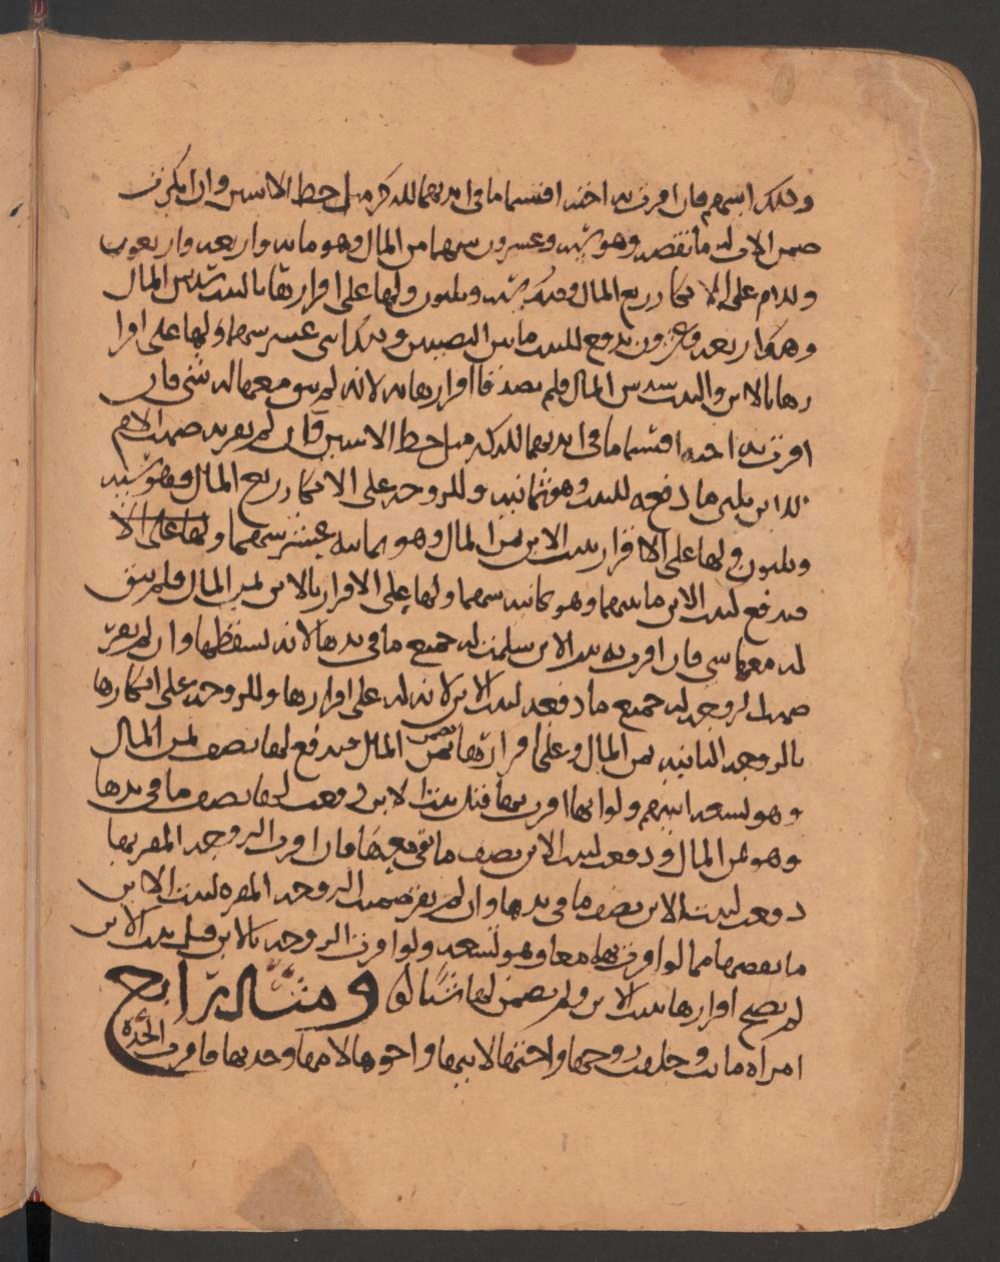 وذلك اسهم فان اقرت به اخته اقتسما ما فى ايديهما للذكر مثل حظ الانثيين وان انكرت
ضمن الابن له ما نقصه وهو ستة وعشرون سهما من المال وهو مائة واربعة واربعون
وللام على الانكار ربع المال وذلك ستة وثلثون ولها على اقرارها بالبنت سدس المال
وهو اربعة وعشرون تدفع للبنت ما بين النصيبين وذلك اثنى عشر سهما ولها على اقرا
رها بالابن والبنت سدس المال فلم يصدقا اقرارها به لانه لم يبق معها له شئ فان
اقرت به اخته اقتسما ما فى ايديهما للذكر مثل حظ الانثيين فان لم يقر به ضمنت الام
للابن ثلثى ما دفعه للبنت وهو ثمانية وللزوجة على الانكار ربع المال وهو ستة
وثلثون ولها على الاقرار ببنت الابن ثمن المال وهو ثمانية عشر سهما ولها على الا
فتدفع لبنت الابن ما بينهما وهو ثمانية سهما ولها على الاقرار بالابن ثمن المال فلم يبق
له معها شى فان اقرت به بنت الابن سلمت له جميع ما فى يدها لانه يسقطها وان لم تقر
ضمنت الزوجة له جميع ما دفعه لبنت الابن لانه له على اقرارها وللزوجة على انكارها
بالزوجة الثانية ثمن المال وعلى اقرارها نصف ثمن المال فتدفع لها نصف ثمن المال
وهو تسعة اسهم ولو انها اقرت بها قبل بنت الابن دفعت لها نصف ما فى يدها
وهو ثمن المال ودفعت لبنت الابن نصف ما بقى معها فان اقرت الزوجة المقر بها
دفعت لبنت الابن نصف ما فى يدها وان لم تقر ضمنت الزوجة المقرة لبنت الابن
ما نقصها مما لو اقرت بهما معا وهو تسعة ولو اقرت الزوجة بالابن قبل بنت الابن
لم يصح اقرارها ببنت الابن ولم تضمن لها شيئا لو ومثال رابع
امراة ماتت وخلفت زوجها واختها لابيها واخوها لامها وجدتها فاقرت الجدة